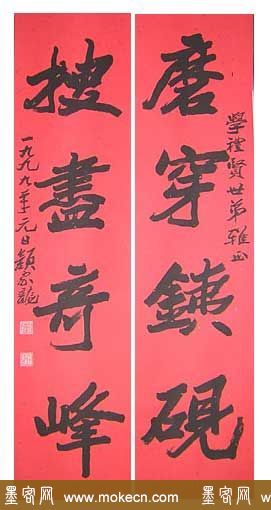 學禮賢世弟雅正
磨穿銕硯
搜盡奇峰
一九九九年元日顏家龍
墨客网 www.mokecn.com 墨客网